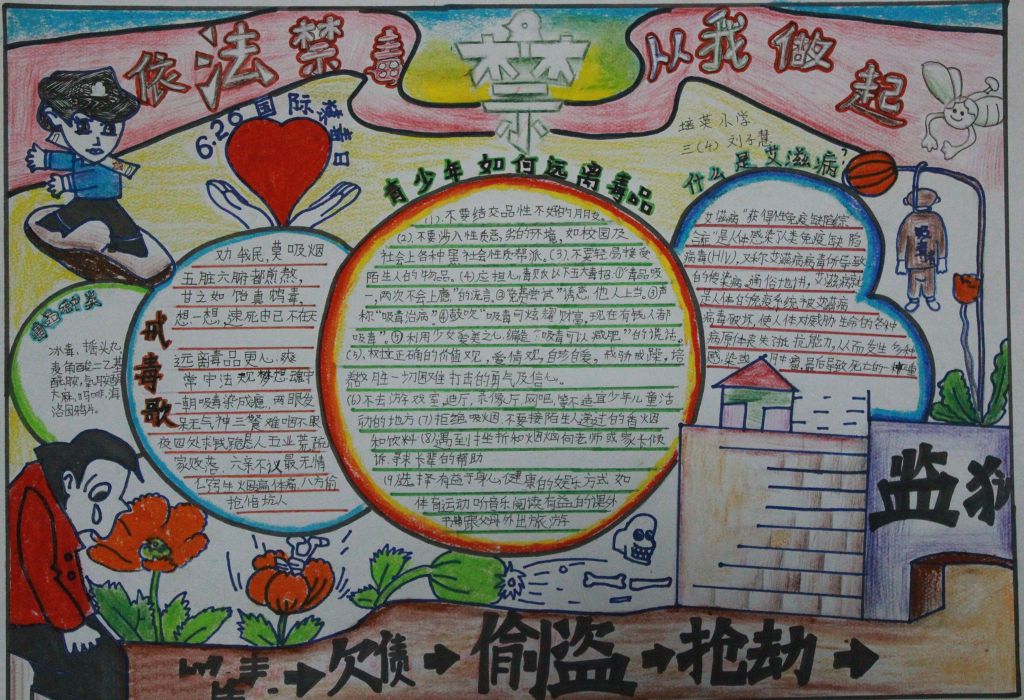 依法禁毒
禁
从我做起
6.26国际禁毒日
培英小学
三(4) 刘子慧
青少年如何远离毒品
什么是艾滋病?
劝我民,莫吸烟
五脏六腑都煎熬,
甘之如饴真鸩毒,
想一想,速死由己不在天
远离毒品更心爽
常中法规梦想魂中
一朝吸毒染成瘾,两眼发
呆无气神三餐难咽不果
夜四处求钱跪是人五业荒疏
家败落,六亲不认最无情
七窍生火烟满体痛八方偷
抢倍坑人
戒毒歌
冰毒、摇头丸
麦角酸二乙基
酰胺,氯胺酮
大麻,吗啡,海
洛因鸦片。
(1).不要结交品性不好的朋友。
(2).不要涉入性质恶劣的环境,如校园及
社会上各种黑社会性质帮派。(3).不要轻易接受
陌生人的物品。(4).应担心毒贩以下五大毒招:①"毒品吸
一,两次不会上瘾"的流言.②"免费尝试"诱惑他人上当。③声
称"吸毒治病"④鼓吹"吸毒可炫耀财富,现在有钱人都
吸毒"。⑤利用少女爱美之心,编造"吸毒可以减肥"的说法。
(5).树立正确的价值观,爱情观,自珍自爱。戒骄戒躁,培
战胜一切困难打击的勇气及信心。
(6)不去游戏室,迪厅,录像厅,网吧,等不适宜少年儿童活
动的地方(7)拒绝吸烟,不要接陌生人递过的香烟
和饮料(8)遇到挫折和烦恼向老师或家长倾
诉.寻求长辈的帮助
(9)选择有益于身心健康的娱乐方式 如
体育运动 听音乐 阅读有益的课外
书籍跟父母外出旅游
艾滋病"获得性免疫缺陷综
合症"是人体感染人类免疫缺陷
病毒(HIV),又称艾滋病病毒所导致
的传染病,通俗地讲,艾滋病就
是人体的免疫系统被艾滋病
病毒破坏,使人体对威胁生命的各种
病原体丧失抵抗能力,从而发生多种
感染或肿瘤,最后导致死亡的一种严重
吸毒
监狱
→欠债→偷盗→抢劫→